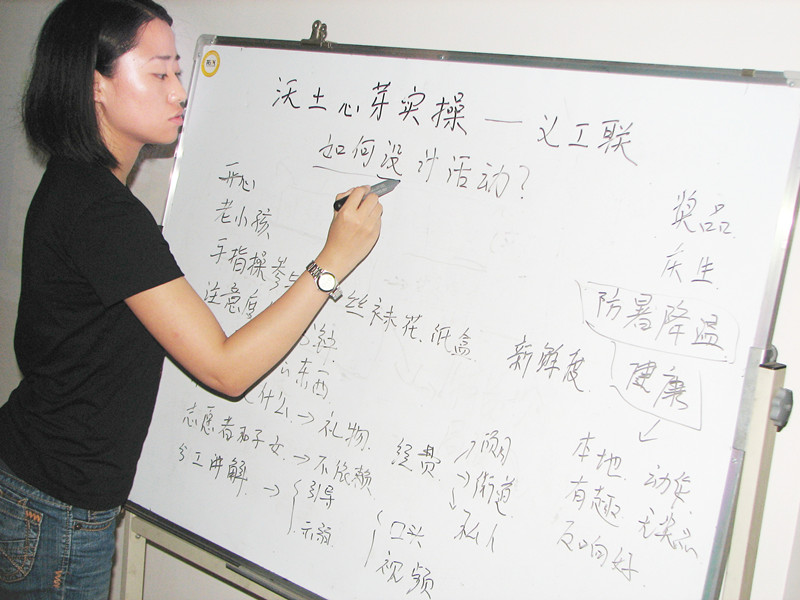 沃土心芽实操 — 义工联
如何设计活动?
开心
老小孩
手指操 参与
注意
丝袜花、纸盒
东西
什么→礼物
志愿者和子女→不依赖
分工讲解→
引导
示弱
口头
视频
经费
→项目
→街道
→私人
新鲜度
奖品
庆生
防暑降温
健康
本地
有趣
反响好
动作